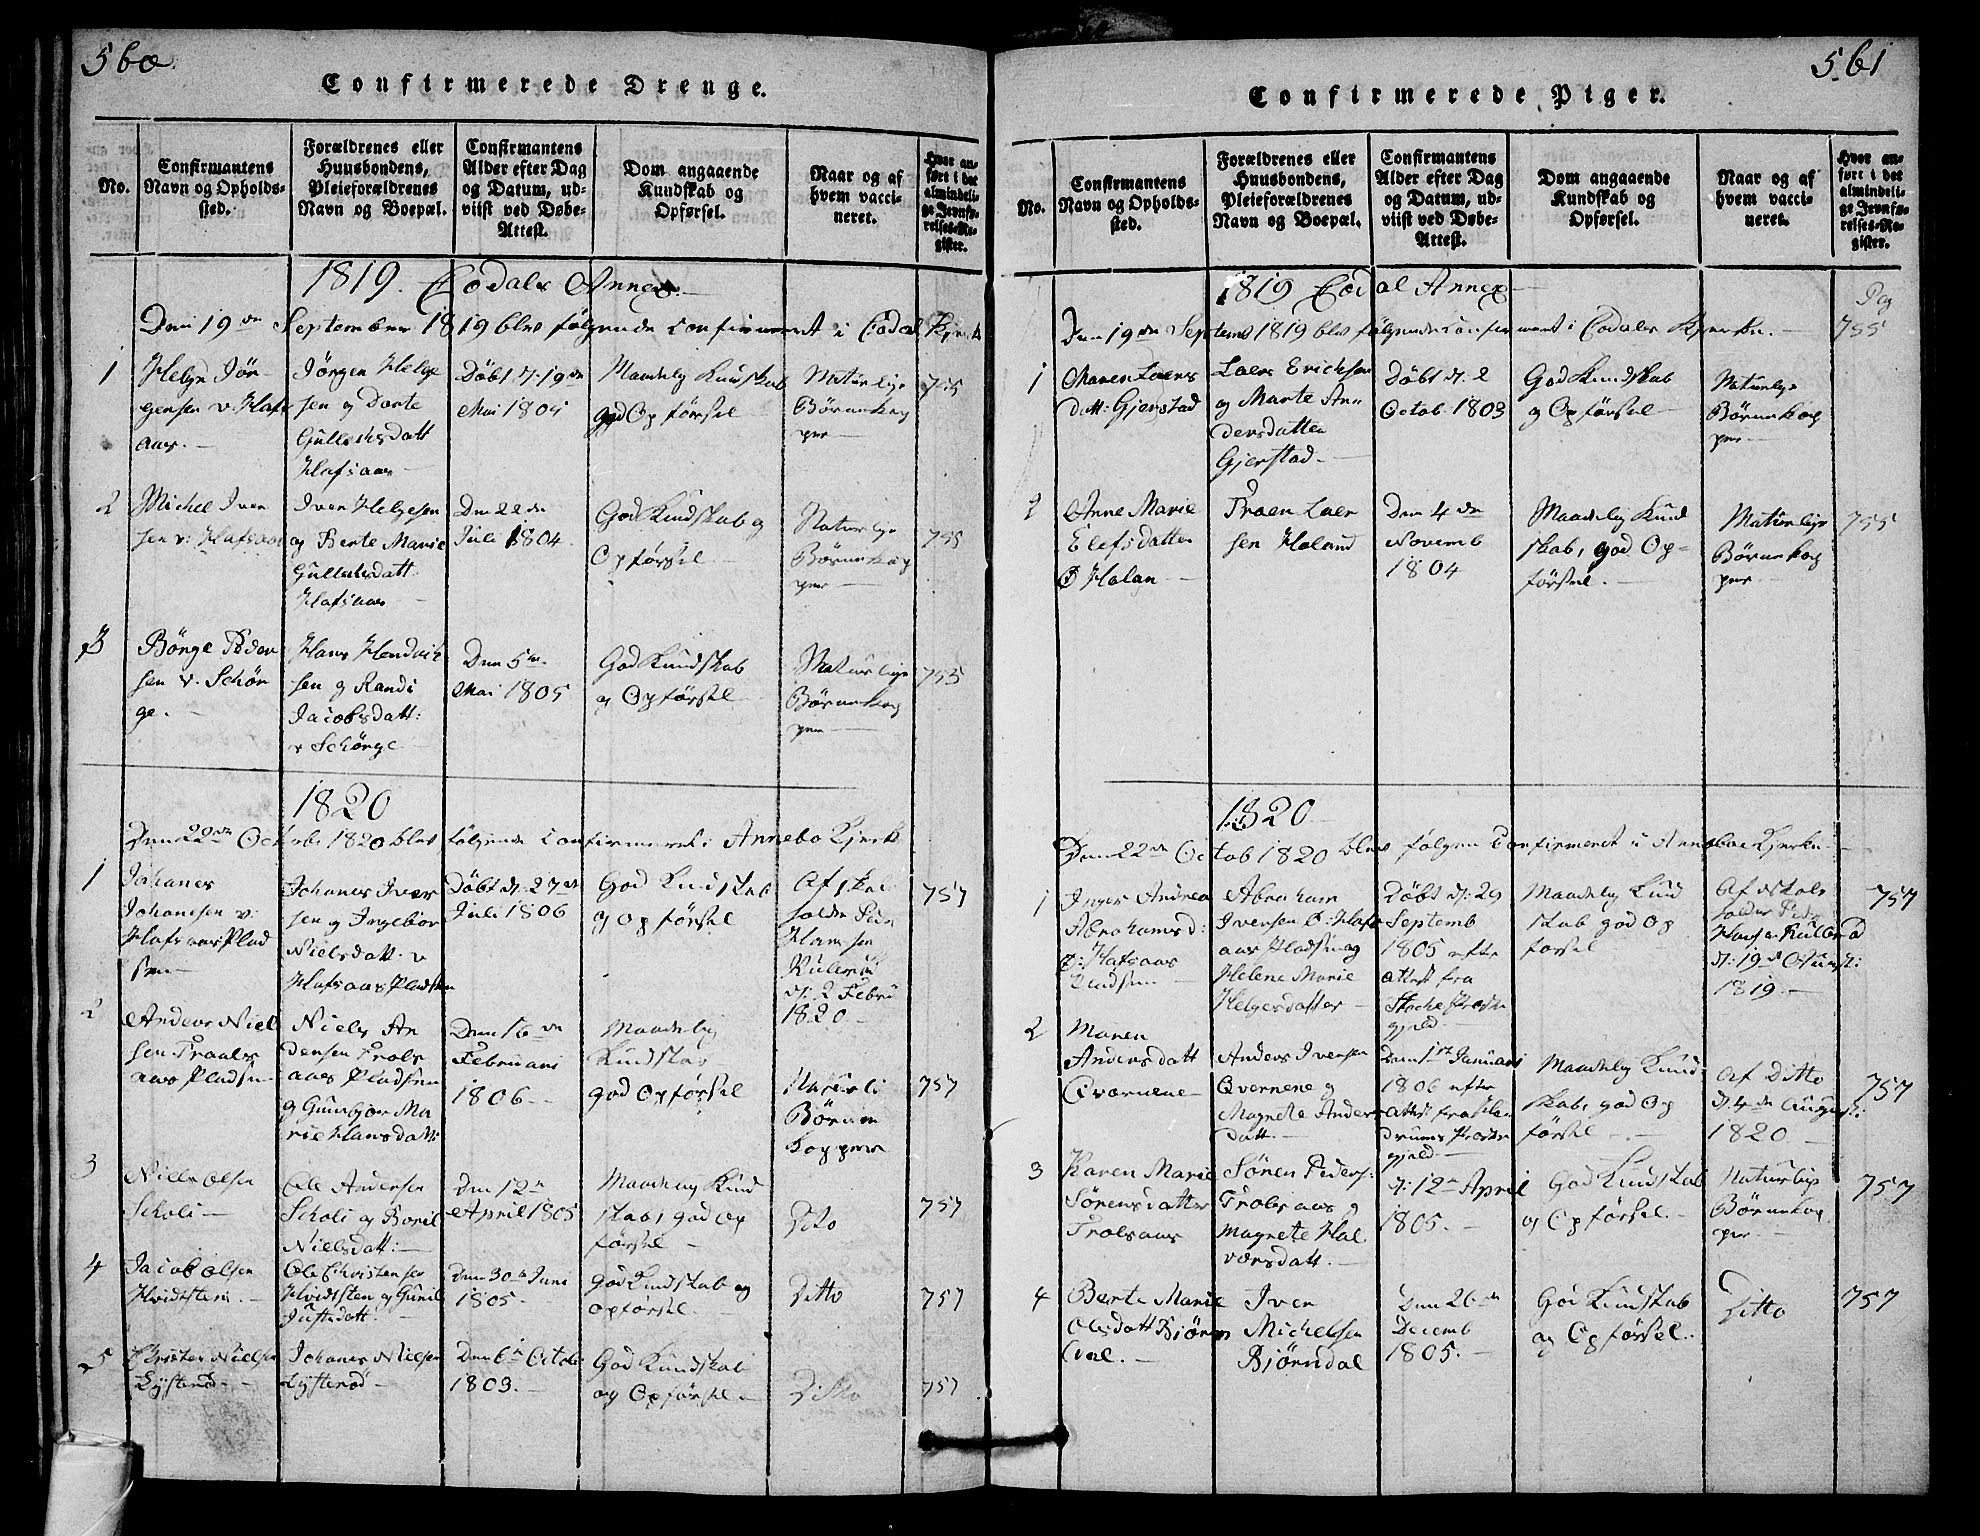 560.
Confirmerede Drenge.
No.
Confirmantens
Navn og Opholds-
sted.
Forældrenes eller
Huusbondens,
Pleieforældrenes
Navn og Boepæl.
Confirmantens
Alder efter Dag
og Datum, ud-
viist ved Døbe-
Attest.
Dom angaaende
Kundskab og
Opførsel.
Naar og af
hvem vacci-
neret.
Hvor an-
ført i det
almindeli-
ge Jevnfø-
relses-Re-
gister.
1819. Eidals Annex.
Den 19de September 1819 blev følgende confirmeret i Kjerke
1
Helge Jör-
gensen v. Hafs
aas.
Jörgen Helge
sen og Dorte
Gullichsdatt
Hafsaas
Döbt d. 19de
Mai 1804
Maadelig Kundskab
god Opförsel
Naturlige
Börnekop
per
755
2
Michel Iver
sen v: Hafsaas
Iver Helgesen
og Berte Marie
Gullichsdatt.
Hafsaas
Den 22de
Juli 1804.
God Kundskab og
Opförsel
Naturlige
Börnekop
per
755
3
Börge Peder
sen v. Schör
ge.
Hans Hendrich
sen og Randi
Jacobsdatt:
v Schörge
Den 5te
Mai 1805
God Kundskab
og Opförsel
Naturlige
Börnekop
per
755
1820
Den 22de Octobr. 1820 blev følgende confirmeret i Annebo Kjerke
1
Johanes
Johanesen v:
Hafsaas Plad
sen
Johanes Iver
sen og Ingebor
Nielsdatt. v
Hafsaas Pladsen
Döbt d. 27de
Juli 1806
God Kundskab
og opförsel
Af skole
holder Peder
Hansen
Rulerü
d: 2 Febru
1820
757
2
Anders Niel
sen Traals
aas Pladsen
Niels An
dersen Trols
aas Pladsen
og Gunbjør Ma
rie Hansdatt:
Den 16de
Februari
1806
Maadelig
Kundskab
god Opförsel
Naturli
Börne
kopper
757
3
Niels Olsen
Scholi
Ole Andersen
Scholi og Boril
Nielsdatt:
Den 12te
April 1805
Maadelig Kund
skab, god Op
försel
Dito
757
4
Jacob Olsen
Hvidtsten.
Ole Christensen
Hvidtsten og Gunil
Justsdatt.
Den 30te Juni
1805.
God Kundskab og
opförsel.
Ditto
757
5
Christen Nielsen
Lysteröd
Johanes Nielsen
Lysteröd
Den 6te Octob.
1803.
God Kundskab
og Opförsel
Ditto
757
561
Confirmerede Piger.
No.
Confirmantens
Navn og Opholds-
sted.
Forældrenes eller
Huusbondens,
Pleieforældrenes
Navn og Boepæl.
Confirmantens
Alder efter Dag
og Datum, ud-
viist ved Døbe-
Attest.
Dom angaaende
Kundskab og
Opførsel.
Naar og af
hvem vacci-
neret.
Hvor an-
ført i det
almindeli-
ge Jevnfø-
relses-Re-
gister.
1819 Annex
Den 19de Septemb 1819 blev følgende confirmeret i Kjerke.
Pag
755
1
Maren Laers
datt: Gjerstad
Laers Ericksen
og Marte An
dersdatter
Gjerstad.
Döbt d. 2
Octob. 1803
God Kundskab
og Opförsel
Naturlige
Börnekop
per
2
Anne Marie
Elefsdatter
Holan
Traen Laer
sen Holand
Den 4de
Novemb
1804
Maadelig Kund
skab, god Op-
försel.
Naturlige
Börnekop
per
755
1820
Den 22de Octob 1820 blev følgen Confirmeret i Anneboe Kjerke
1
Inger Andrea
Abrahamsd:
Hafsaas
Pladsen
Abraham
Iversen Hafs
aas Pladsen og
Helene Marie
Helgesdatter
Döbt d: 29
Septemb
1805 efter
attest fra
Stocke Præste
gjeld.
Maadelig Kund
skab god Op
försel
Af skole
holder Peder
Hansen Rullerud
d: 19de
1819.
757
2
Maren
Andersdatt
Qvernene
Anders Iversen
Qvernene og
Magrete Anders
datt.
Den 1ste Januari
1806 efter
attest fra
Præste
gjeld.
Maadelig Kund
skab, god Op
försel
Af Ditto
d. 4de August:
1820
757
3
Karen Marie
Sörensdatter
Trolsaas
Sören Peders:
Trolsaas og
Magrete Hal
vorsdatt.
d: 12te April
1805.
God Kundskab
og Opförsel.
Naturlige
Börnekop
per
757
4
Berte Marie
Olsdatt Björn
dal.
Iver
Michelsen
Björndal
Den 26de
Decemb
1805.
God Kundskab
og Opförsel.
Ditto
757